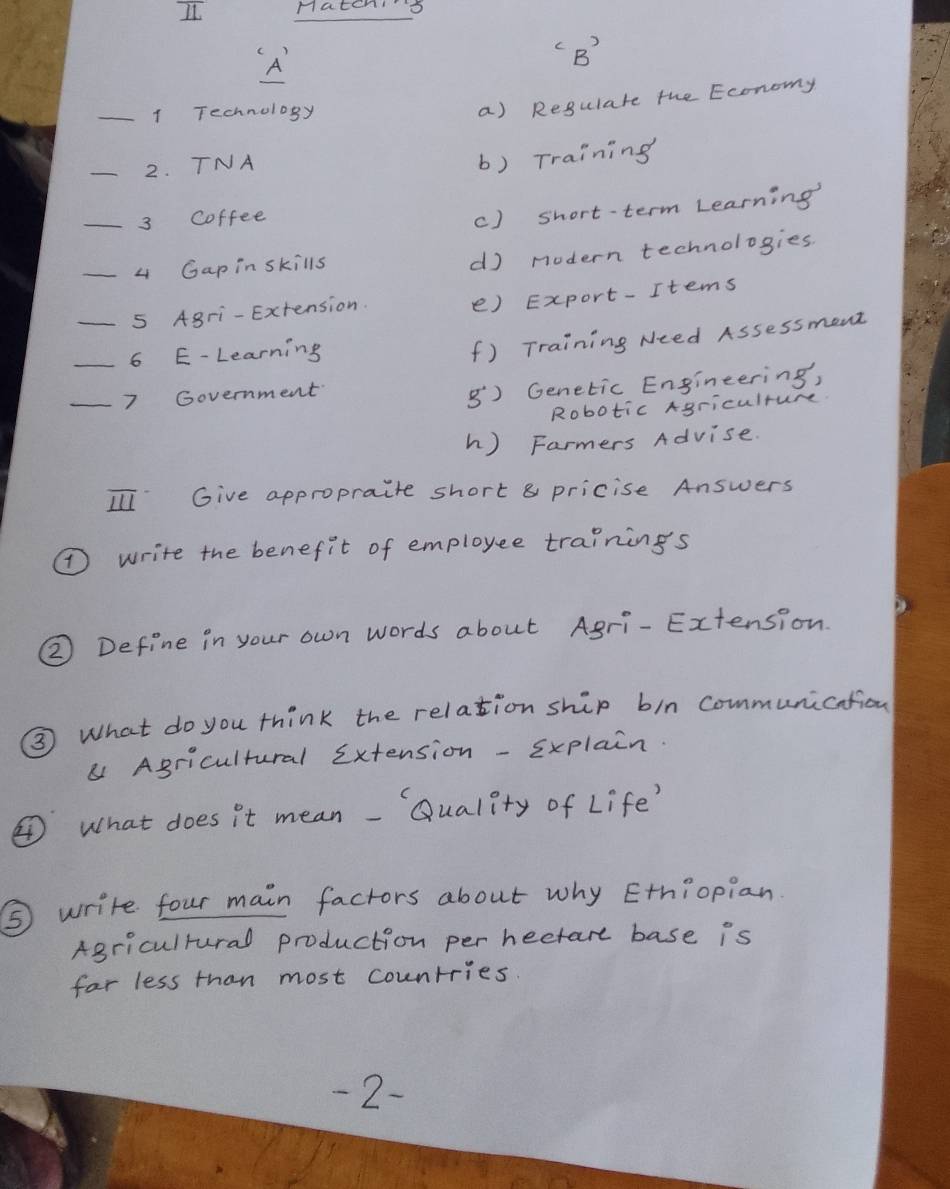 II Matching
'A' 'B'
__ 1 Technology a) Regulate the Economy
__ 2. TNA b) Training
__ 3 Coffee c) Short-term Learning
__ 4 Gap in skills d) Modern technologies
__ 5 Agri-Extension. e) Export-Items
__ 6 E-Learning f) Training Need Assessment
__ 7 Government g) Genetic Engineering,
Robotic Agriculture.
h) Farmers Advise.
III Give appropraite short & pricise Answers
① write the benefit of employee trainings
② Define in your own words about Agri-Extension.
③ What do you think the relation ship b/n communication
& Agricultural Extension - Explain.
④ What does it mean - 'Quality of Life'
⑤ write four main factors about why Ethiopian
Agricultural production per hectare base is
far less than most countries.
-2-